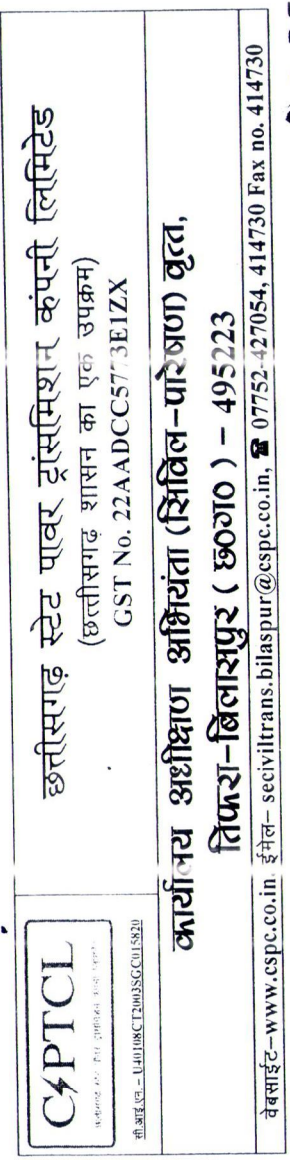 CSPTCL
सी.आई.एन. - U40108CT2003SGC015820
छत्तीसगढ़ स्टेट पावर ट्रांसमिशन कंपनी लिमिटेड
(छत्तीसगढ़ शासन का एक उपक्रम)
GST No. 22AADCC5773E1ZX
कार्यालय अधीक्षण अभियंता (सिविल-पारेषण) वृत्त,
तिफरा-बिलासपुर ( छ०ग० ) - 495223
वेबसाईट-www.cspc.co.in, ईमेल- seciviltrans.bilaspur@cspc.co.in, ☎ 07752-427054, 414730 Fax no. 414730